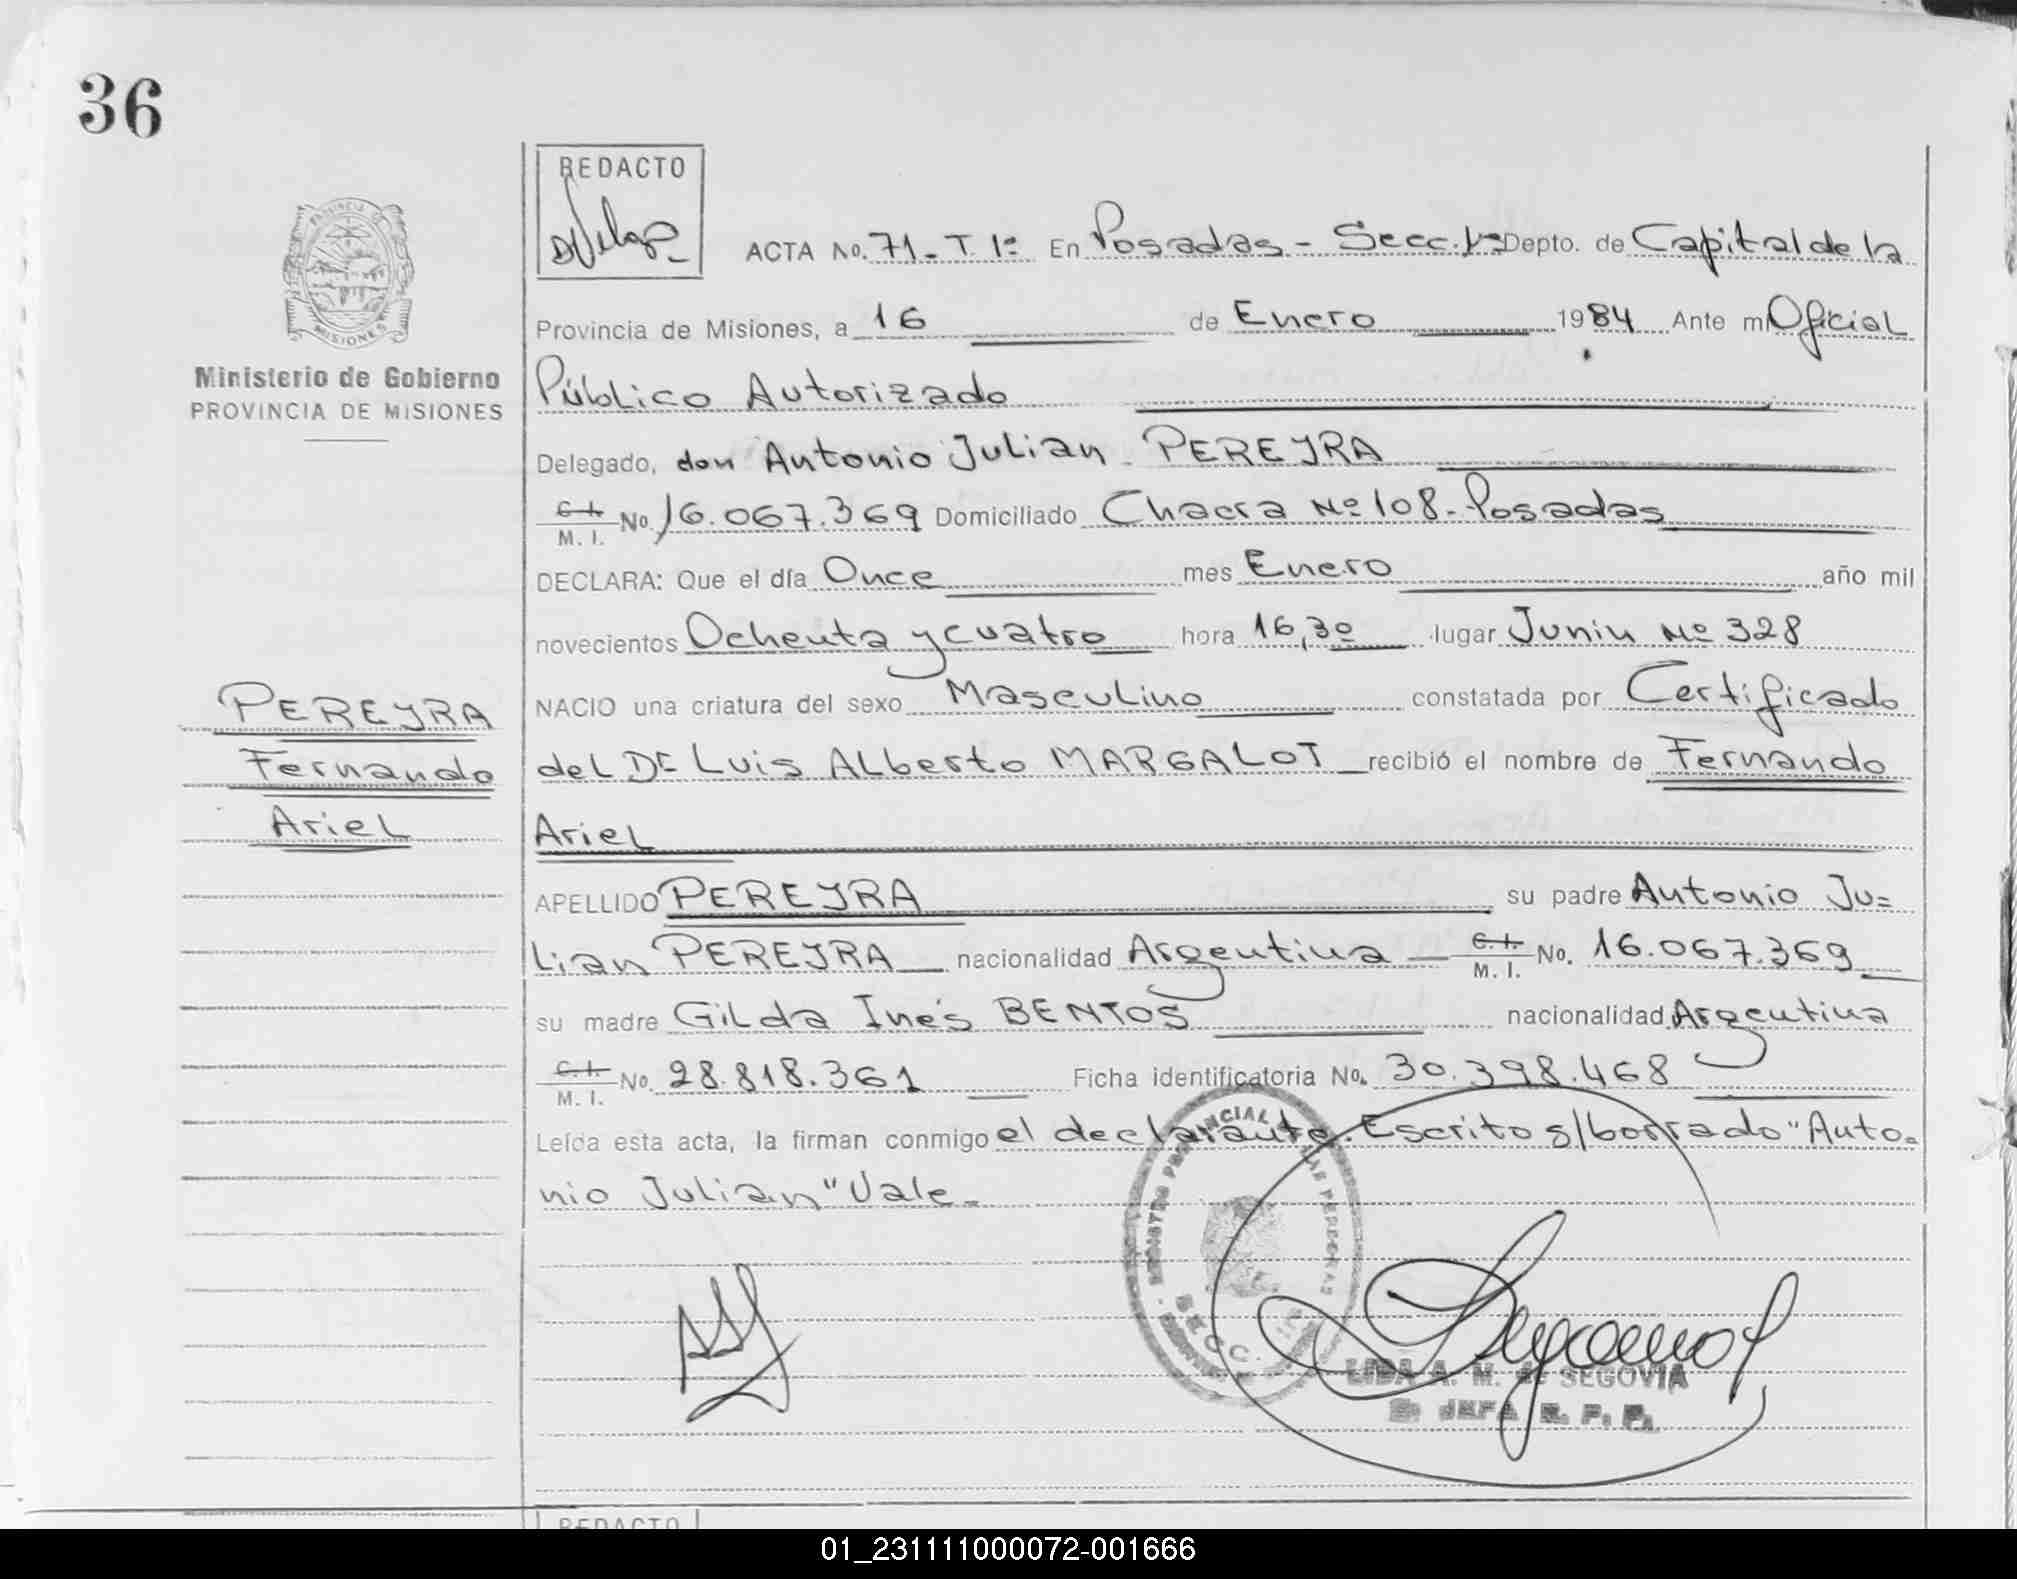 36
REDACTO
ACTA No. 71 - T. 1º En Posadas - Secc. 1ª Depto. de Capital de la
Provincia de Misiones, a 16 de Enero 1984 Ante mi Oficial
Ministerio de Gobierno
PROVINCIA DE MISIONES
Público Autorizado
Delegado, don Antonio Julian PEREYRA
C. I. M. I. No. 16.067.369 Domiciliado Chacra Nº 108 - Posadas
DECLARA: Que el día Once mes Enero año mil
novecientos Ochenta y cuatro hora 16,30 lugar Junin Nº 328
PEREYRA
Fernando
Ariel
NACIO una criatura del sexo Masculino constatada por Certificado
del Dr Luis Alberto MARGALOT recibió el nombre de Fernando
Ariel
APELLIDO PEREYRA su padre Antonio Ju=
lian PEREYRA nacionalidad Argentina C. I. M. I. No. 16.067.369
su madre Gilda Inés BENTOS nacionalidad Argentina
C. I. M. I. No. 28.818.361 Ficha identificatoria No. 30.398.468
Leída esta acta, la firman conmigo el declarante. Escrito s/borrado "Anto=
nio Julian" Vale.
LIDA A. M. de SEGOVIA
JEFA R. P. P.
REDACTO
01_231111000072-001666